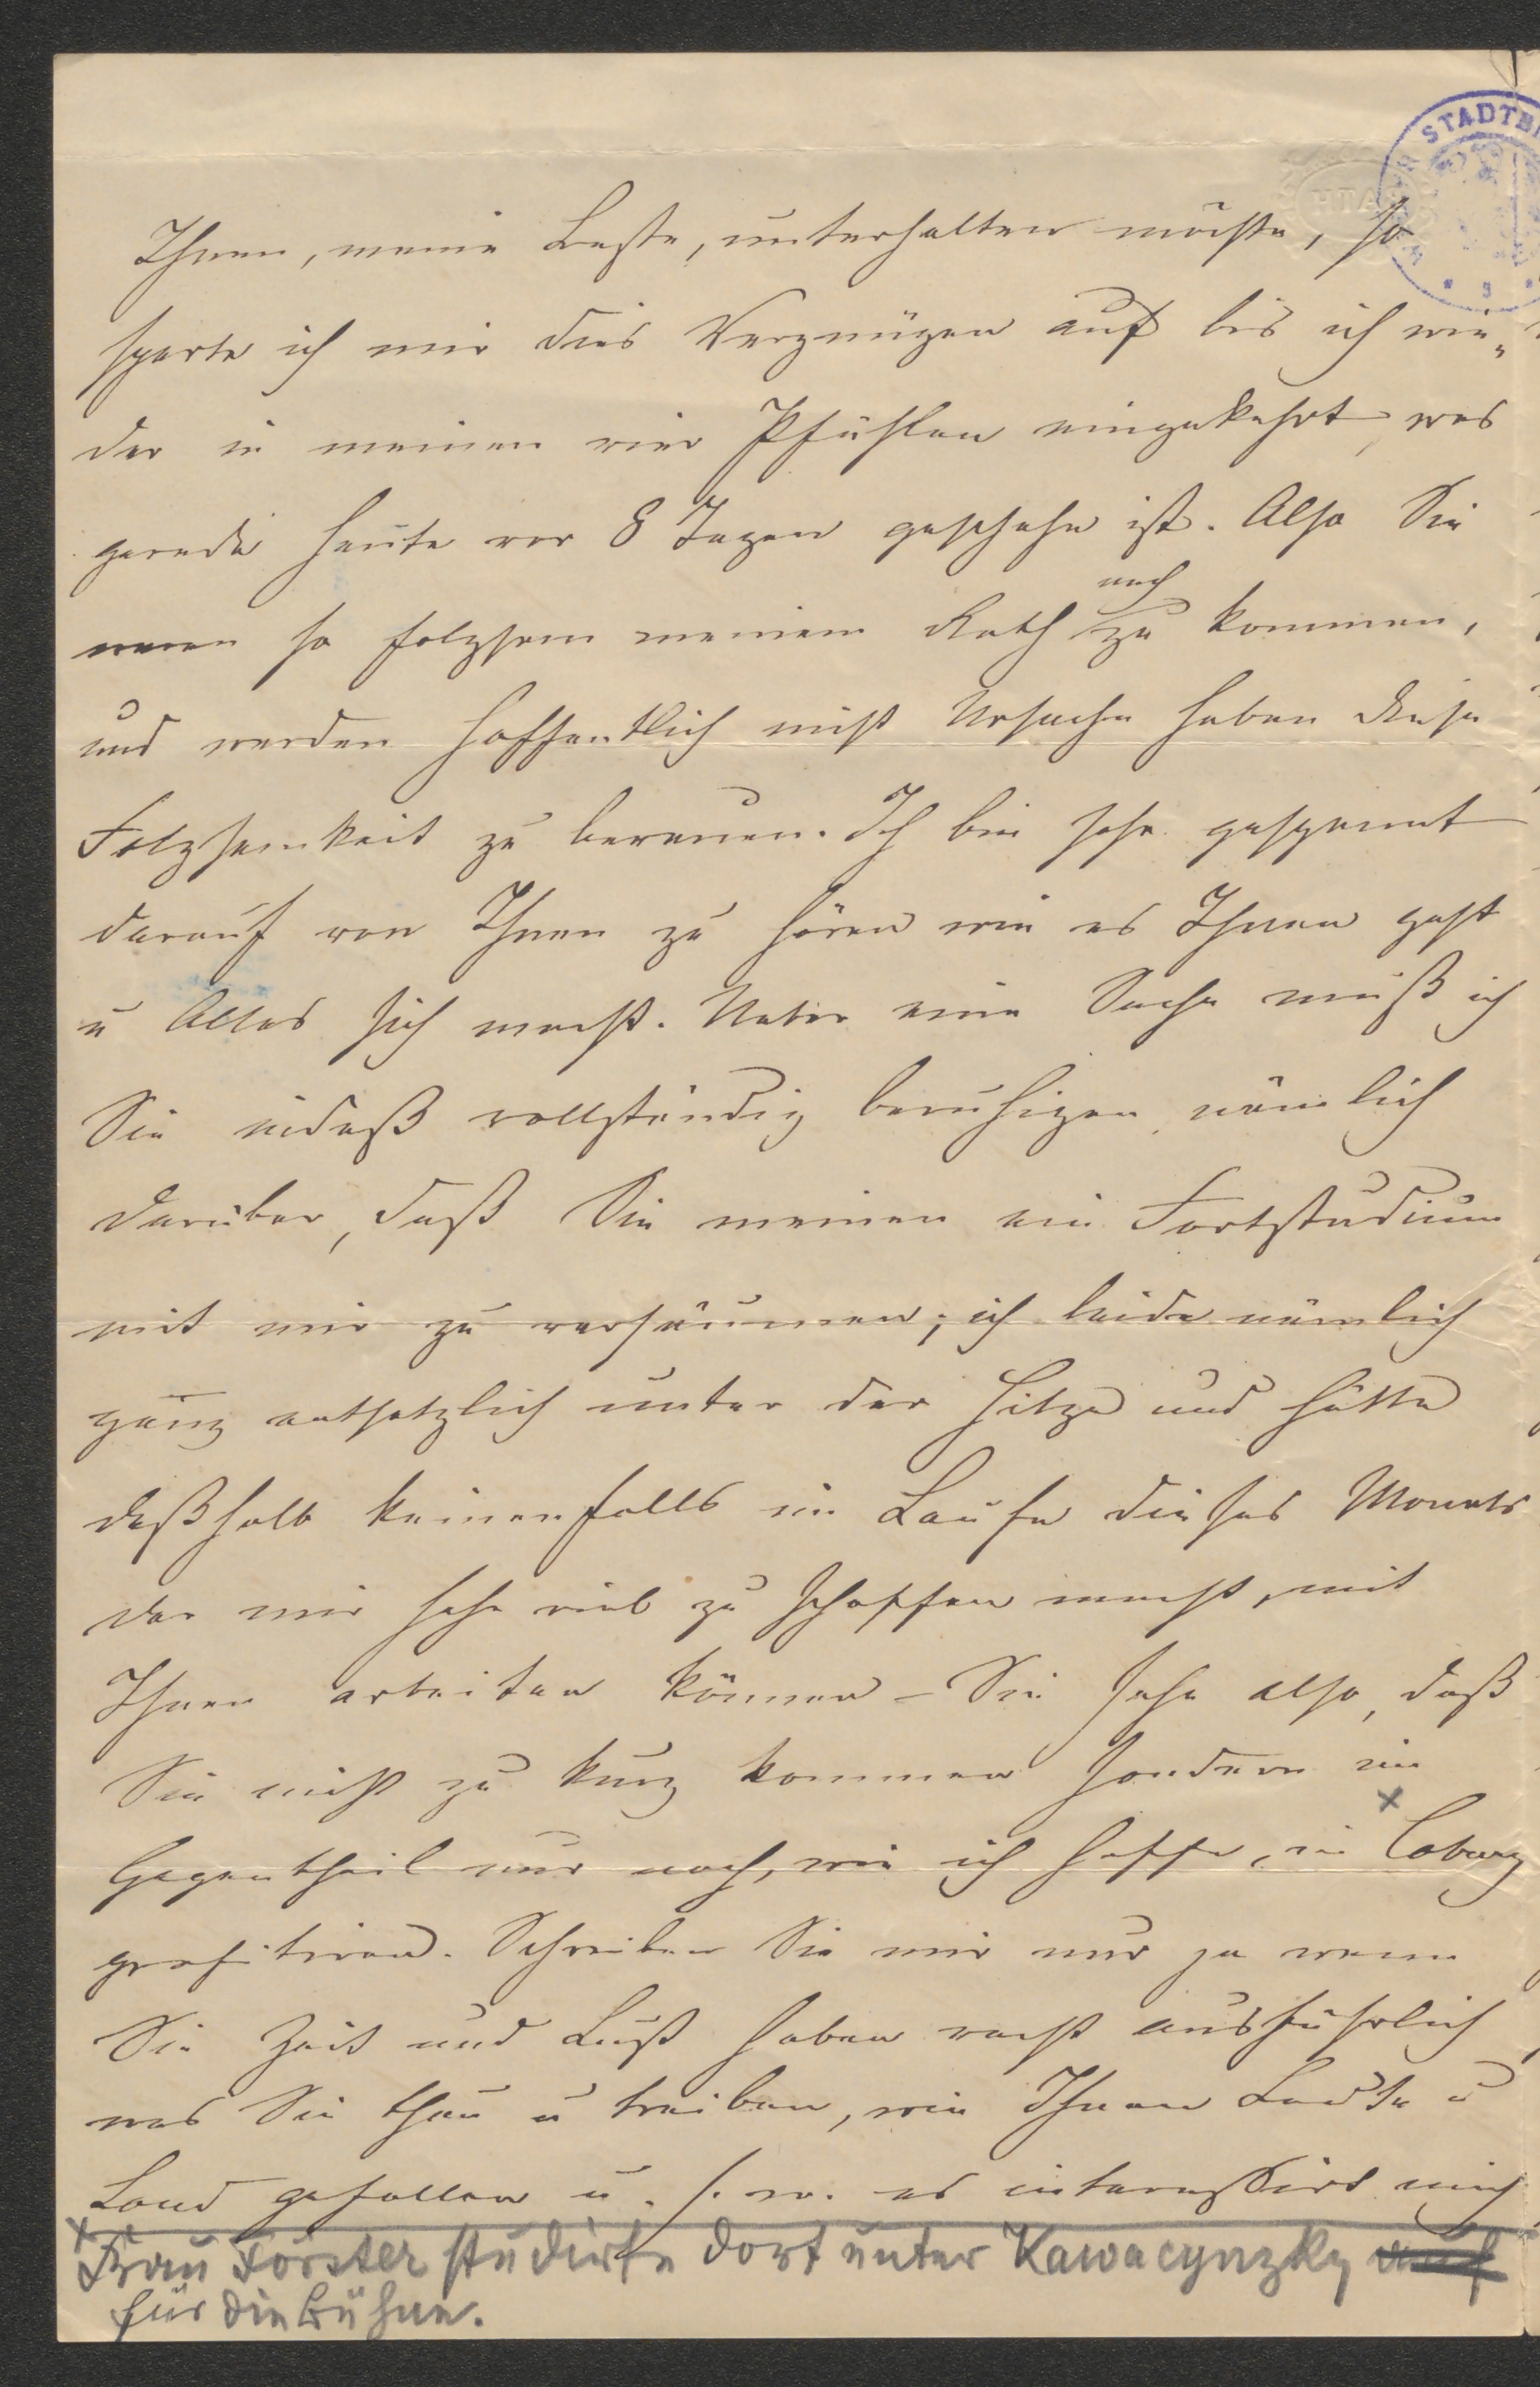 STADTBI
HPA
Ihnen, meine Beste, unterhalten möchte, so
sparte ich mir dies Vergnügen auf bis ich wie„
der in meinen vier Pfählen eingekehrt, was
gerade heute vor 8 Tagen geschehn ist. Also Sie
waren so folgsam meinem Rath nach zu kommen,
und werden hoffentlich nicht Ursache haben diese
Folgsamkeit zu bereuen. Ich bin sehr gespannt
darauf von Ihnen zu hören wie es Ihnen geht
u Alles sich macht. Ueber eine Sache muß ich
Sie indeß vollständig beruhigen, nämlich
darüber, daß Sie meinen ein Fortstudium
mit mir zu versäumen; ich leide nämlich
ganz entsetzlich unter der Hitze und hätte
deßhalb keinenfalls im Laufe dieses Monats
der mir sehr viel zu schaffen macht, mit
Ihnen arbeiten können – Sie sehn also, daß
Sie nicht zu kurz kommen sondern im
Gegentheil nur noch, wie ich hoffe, in × Coburg
profitiren. Schreiben Sie mir nur ja wenn
Sie Zeit und Lust haben recht ausführlich
was Sie thun u treiben, wie Ihnen Leute u
Land gefallen u. s. w. es interessirt mich
× Frau Förster studirte dort unter Kawacynzky auf
für die Bühne.